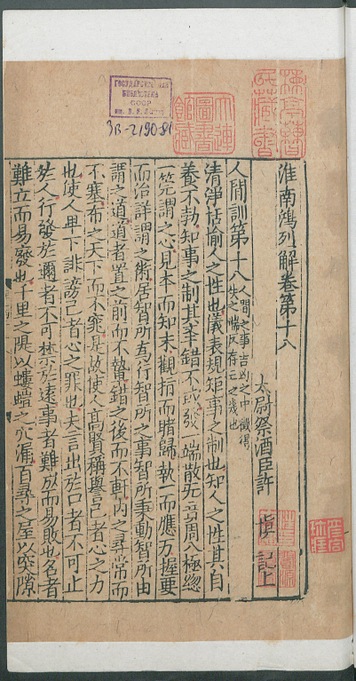 ГОСУДАРСТВЕННАЯ
БИБЛИОТЕКА
СССР
3В-2/90-81
大連
圖書
館藏
淮南鴻列解卷第十八
太尉祭酒臣許 慎 記上
人閒訓第十八 人間之事吉凶之中徵得
失之端反存亡之幾也
清淨恬愉人之性也儀表規矩事之制也知人之性其自
養不勃知事之制其舉錯不或發一端散无竟周八極總
一筦謂之心見本而知末觀指而睹歸執一而應万握要
而治詳謂之術居智所爲行智所之事智所秉動智所由
謂之道道者置之前而不𨎌錯之後而不軒内之尋常而
不塞布之天下而不窕是故使人高賢稱譽己者心之力
也使人卑下誹謗己者心之罪也夫言出於口者不可止
於人行發於邇者不可禁於遠事者難成而易敗也名者
難立而易發也千里之隄以螻螘之穴漏百尋之屋以突隙